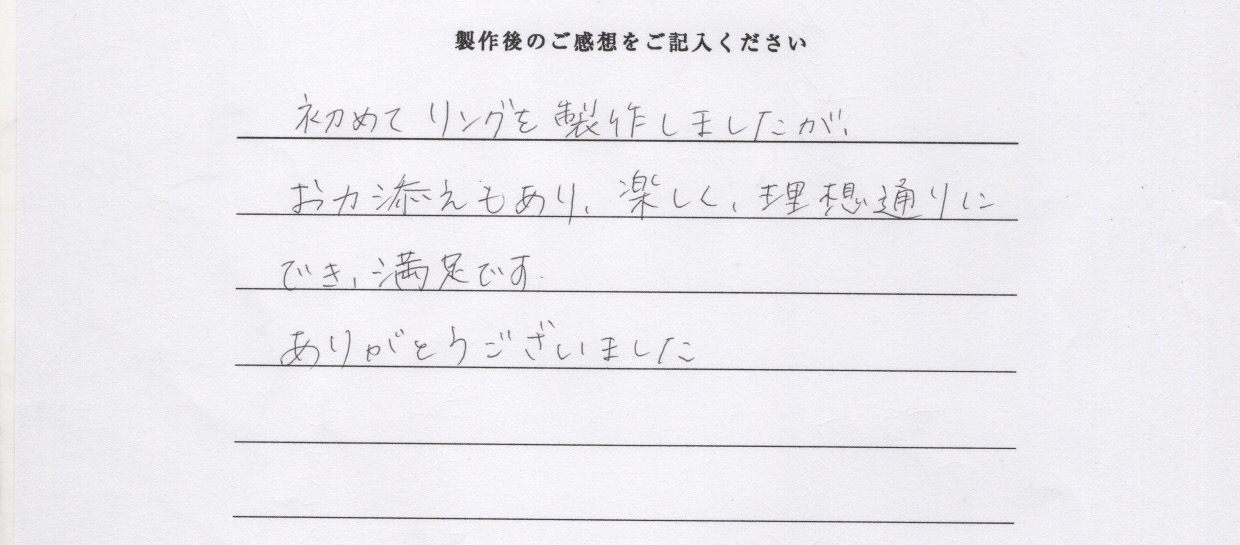 製作後のご感想をご記入ください
初めてリングを製作しましたが、
お力添えもあり、楽しく、理想通りに
でき、満足です.
ありがとうございました